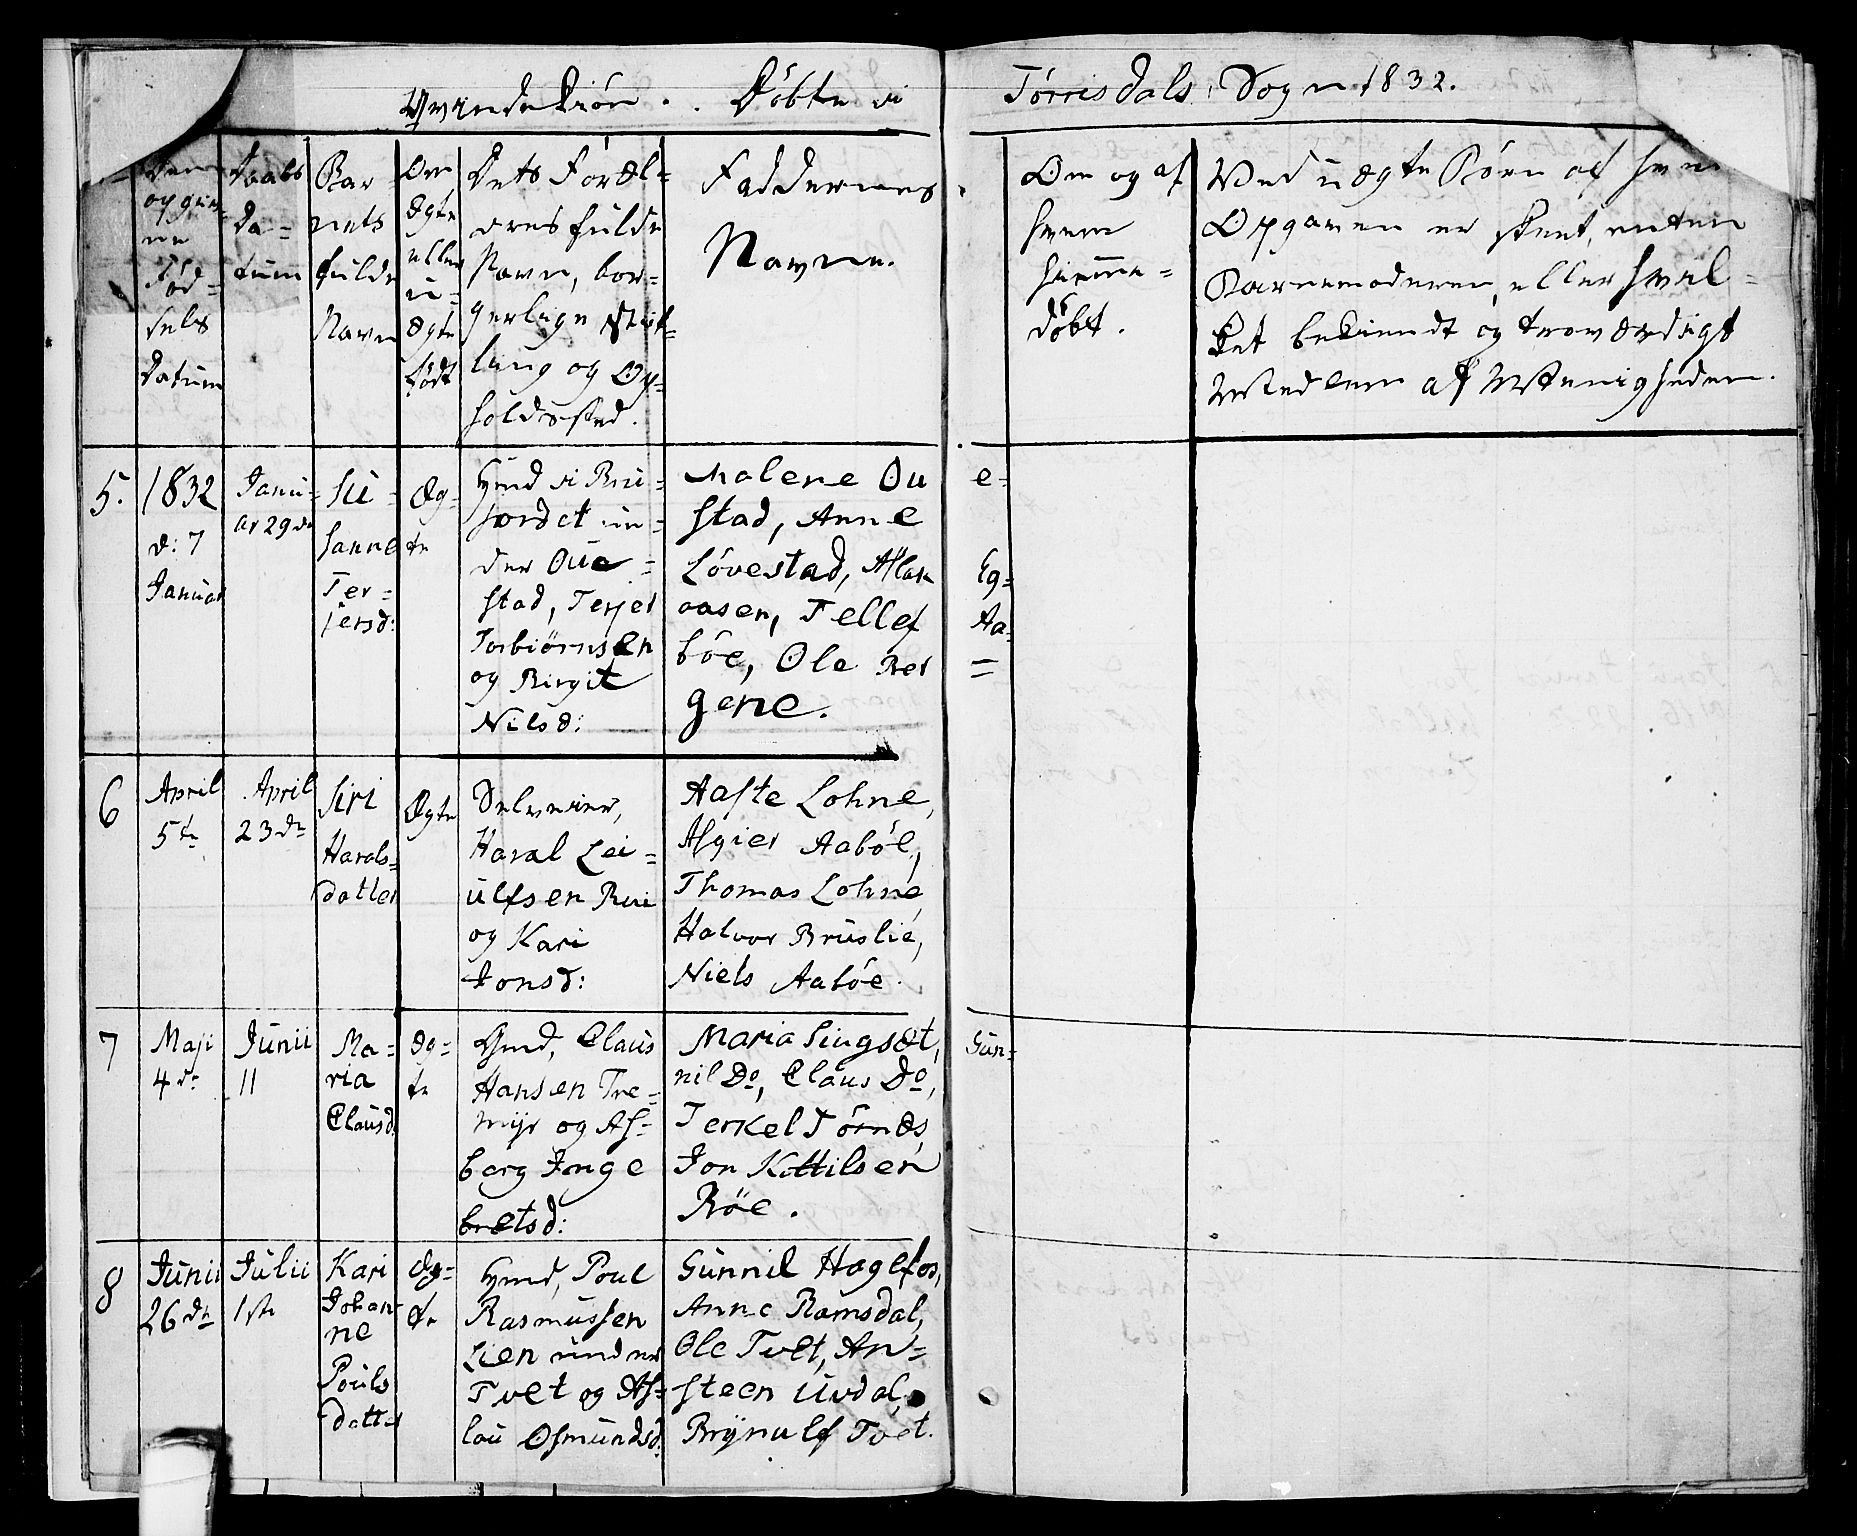 Qvindekiön . . Döbte i Tørrisdals Sogn 1832.
Den
opgiv=
ne
Föd=
sels
Datum
Daabs
Da=
tum
Bar=
nets
fulde
Navn
Om
ægte
eller
u=
ægte
födt
Dets Foræl=
dres fulde
Navn, bor=
gerlige Stil=
ling og Op=
holdssted.
Faddernes
Navne.
Om og af
hvem
hiemme=
döbt.
Ved uægte Börn af hvem
Opgaven er skeet, enten
Barnemoderen, eller hvil=
ket bekiendt og troværdigt
Medlem af Menigheden.
5.
1832
d: 7
Januar
Janu=
ar 29de
Su=
sanne
Ter=
jersd:
Æg=
te
Hmd i
un=
der Oue=
stad, Terjer
Torbiørnsen
og Birgit
Nilsd:
Malene Ou e=
stad, Anne
Lövestad, Aslak Eg=
aasen, Tellef Aa=
böe, Ole Ber =
gene.
6
April
5te
April
23de
Siri
Harals=
datter
Ægte
Selveier,
Haral Lei=
ulfsen
og Kari
Jonsd:
Aaste Lohne,
Asgier Aaböe,
Thomas Lohne
Halvor Bruslie,
Niels Aaböe.
7
Maji
4de
Junii
11
Ma=
ria
Clausd.
Æg=
te
Hmd, Claus
Hansen Tre=
myr og As=
berg Inge
bretsd:
Maria Singsæt, Gun=
nil Do, Claus Do,
Terkel Törnæs,
Jon Kittilsen
Böe.
8
Junii
26de
Julii
1ste
Kari
Johan
ne
Pouls
datter
Æg=
te
Hmd, Poul
Rasmussen
Lien under
Tvet og As=
lou Osmundsd:
Gunnil Hagefos,
Anne Ramsdal,
Ole Tvet, An=
steen Uvdal,
Brynulf Tvet.